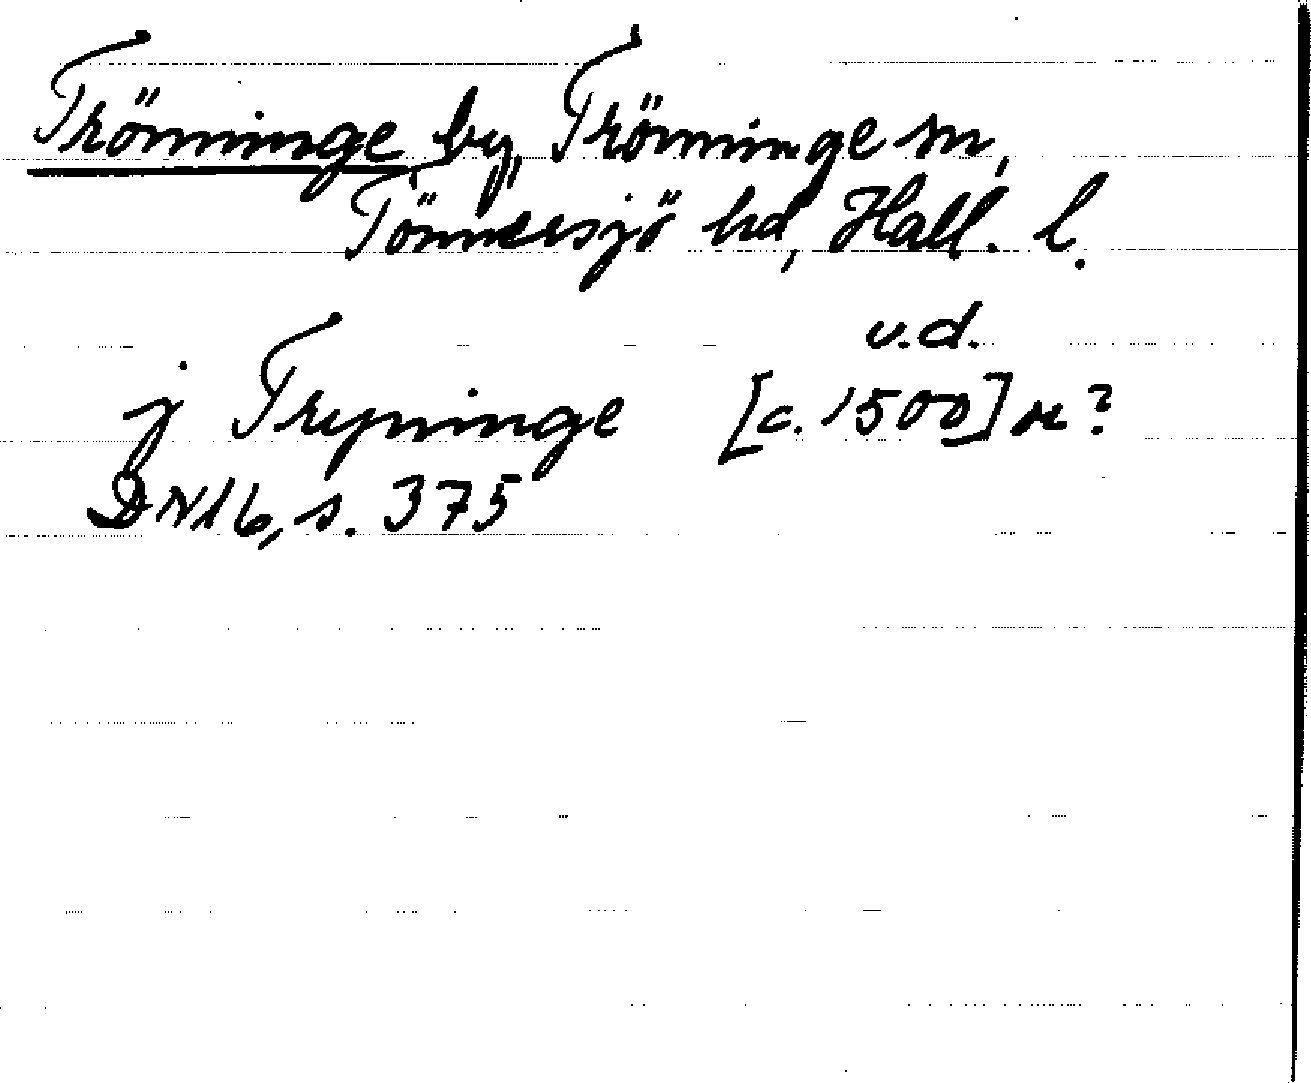 Trönninge by, Trönninge sn,
Tönnersjö hd, Hall. l.
u.d.
j Tryninge [c. 1500] or?
DN 16, s. 375